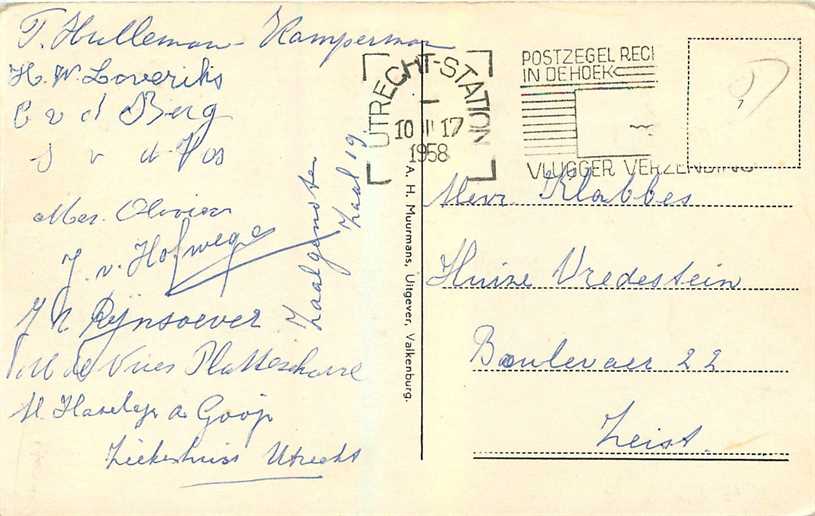 T. Hulleman-Kamperman
H. W. Loveriks
C v d Berg
J v d Vos
Mes. Olivier
J. v. Hofwege
J H Rijnsoever
M de Vries Platteschorre
H. Haselye a Goop
Ziekenhuis Utrecht
Zaalgenoten
Zaal 19
UTRECHT-STATION
10 III 17
1958
POSTZEGEL RECH
IN DE HOEK
VLUGGER VERZENDING
A. H. Muurmans, Uitgever, Valkenburg.
Mevr. Klabbes
Huize Vredestein
Boulevaer 22
Zeist.